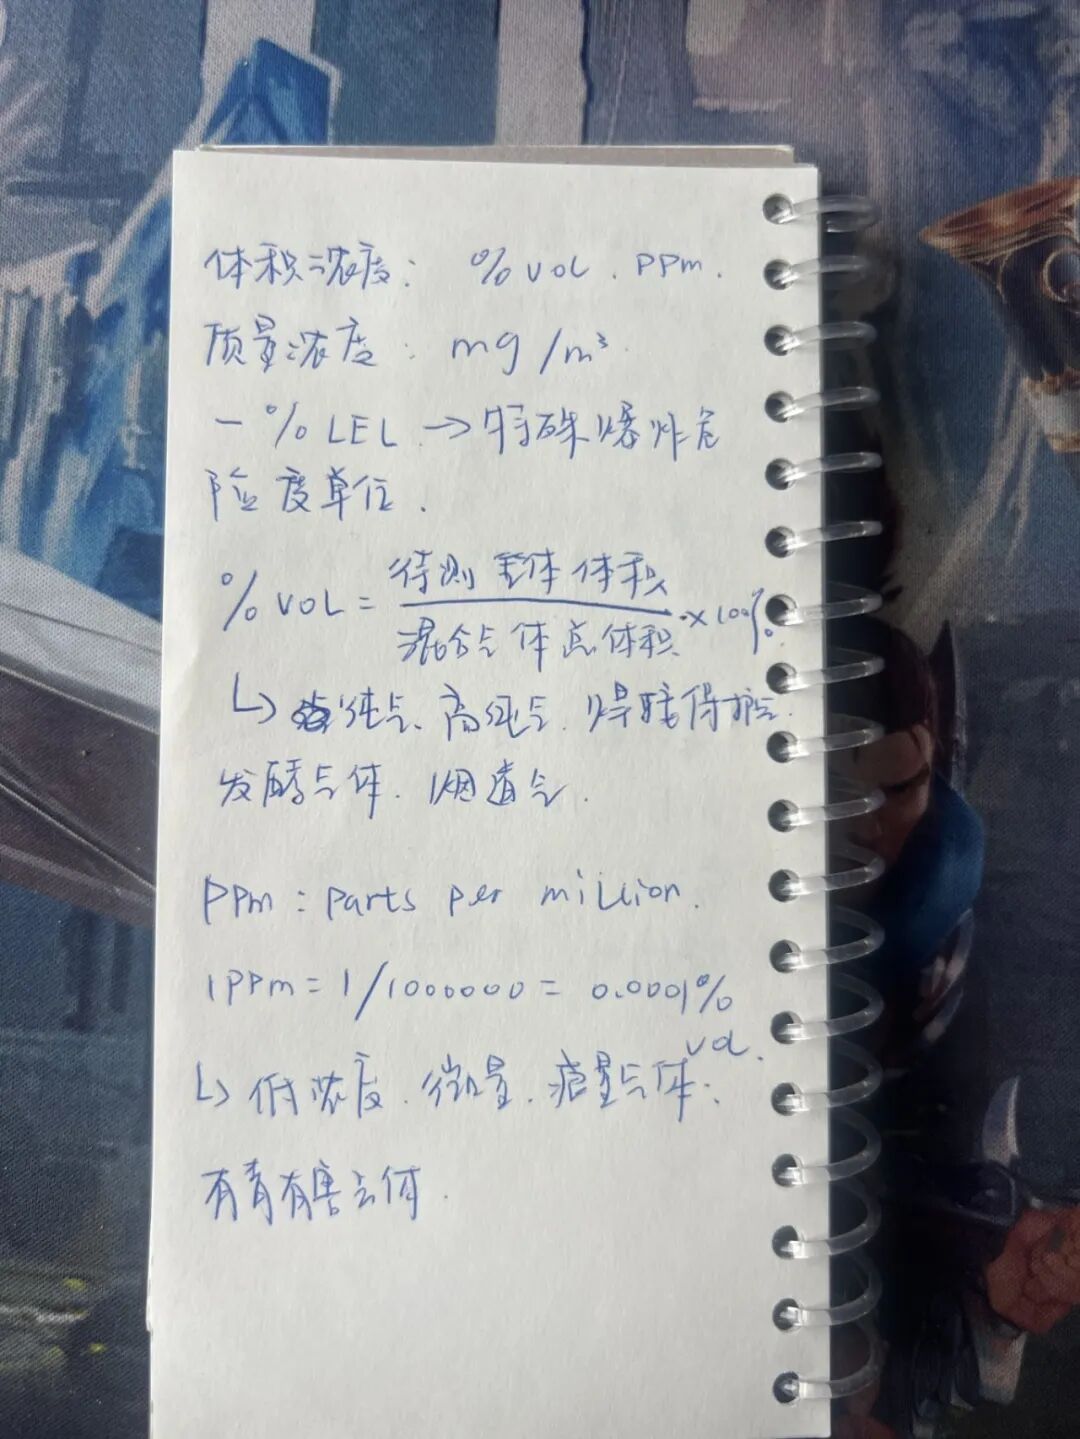 体积浓度: %VOL. PPm.
质量浓度: mg/m³.
- %LEL → 特殊爆炸危
险度单位.
%VOL = 待测气体体积 / 混合气体总体积 ×100%.
↳ 纯气、高纯气. 焊接保护气.
发酵气体. 烟道气.
PPm: parts per million.
1PPm = 1/1000000 = 0.0001%
VOL.
↳ 低浓度. 微量. 痕量气体.
有毒有害气体.